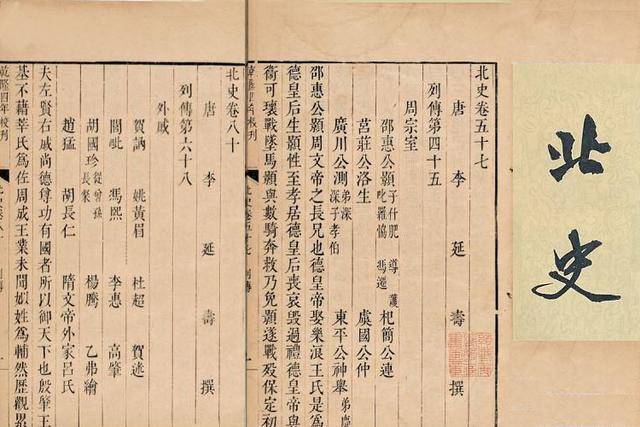 北史
北史卷五十七
唐 李 延 壽 撰
列傳第四十五
周宗室
邵惠公顥 子什肥 導 護 叱羅協 馮遷 杞簡公連
莒莊公洛生 虞國公仲
廣川公測 弟深 深子孝伯 東平公神舉 弟慶
邵惠公顥周文帝之長兄也德皇帝娶樂浪王氏是爲
德皇后生顥性至孝居德皇后喪哀毀過禮德皇帝與
衛可瓌戰墜馬顥與數騎奔救乃免顥遂戰歿保定初
乾隆四年校刊
北史卷五十七 列傳 一
北史卷八十
唐 李 延 壽 撰
列傳第六十八
外戚
賀訥 姚黃眉 杜超 賀迷
閭毗 馮熙 李惠 高肇
胡國珍 從曾孫長粲 楊騰 乙弗繪
趙猛 胡長仁 隋文帝外家呂氏
夫左賢右戚尚德尊功有國者所以御天下也殷肇王
基不藉莘氏爲佐周成王業未聞姒姓爲輔然歷觀累
乾隆四年校刊